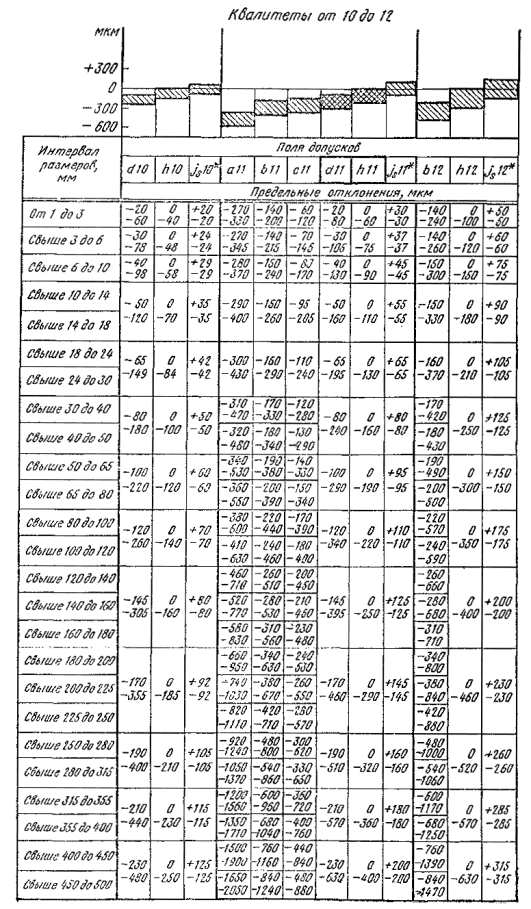 Квалитеты от 10 до 12
мкм
+300
0
-300
-600
Интервал размеров, мм
Поля допусков
d10 h10 js10* a11 b11 c11 d11 h11 js11* b12 h12 js12*
Предельные отклонения, мкм
От 1 до 3 -20 0 +20 -270 -140 -60 -20 0 +30 -140 0 +50
-60 -40 -20 -330 -200 -120 -80 -60 -30 -240 -100 -50
Свыше 3 до 6 -30 0 +24 -270 -140 -70 -30 0 +37 -140 0 +60
-78 -48 -24 -345 -215 -145 -105 -75 -37 -260 -120 -60
Свыше 6 до 10 -40 0 +29 -280 -150 -80 -40 0 +45 -150 0 +75
-98 -58 -29 -370 -240 -170 -130 -90 -45 -300 -150 -75
Свыше 10 до 14
-50 0 +35 -290 -150 -95 -50 0 +55 -150 0 +90
-120 -70 -35 -400 -260 -205 -160 -110 -55 -330 -180 -90
Свыше 14 до 18
Свыше 18 до 24
-65 0 +42 -300 -160 -110 -65 0 +65 -160 0 +105
-149 -84 -42 -430 -290 -240 -195 -130 -65 -370 -210 -105
Свыше 24 до 30
Свыше 30 до 40
-310 -170 -120 -170
-470 -330 -280 -420
-80 0 +50 -80 0 +80 0 +125
-180 -100 -50 -240 -160 -80 -250 -125
Свыше 40 до 50
-320 -180 -130 -180
-480 -340 -290 -430
Свыше 50 до 65
-340 -190 -140 -190
-530 -380 -330 -490
-100 0 +60 -100 0 +95 0 +150
-220 -120 -60 -290 -190 -95 -300 -150
Свыше 65 до 80
-360 -200 -150 -200
-550 -390 -340 -500
Свыше 80 до 100
-380 -220 -170 -220
-600 -440 -390 -570
-120 0 +70 -120 0 +110 0 +175
-260 -140 -70 -340 -220 -110 -350 -175
Свыше 100 до 120
-410 -240 -180 -240
-630 -460 -400 -590
Свыше 120 до 140
-460 -260 -200 -260
-710 -510 -450 -660
Свыше 140 до 160
-145 0 +80 -520 -280 -210 -145 0 +125 -280 0 +200
-305 -160 -80 -770 -530 -460 -395 -250 -125 -680 -400 -200
Свыше 160 до 180
-580 -310 -230 -310
-830 -560 -480 -710
Свыше 180 до 200
-660 -340 -240 -340
-950 -630 -530 -800
Свыше 200 до 225
-170 0 +92 -740 -380 -260 -170 0 +145 -380 0 +230
-355 -185 -92 -1030 -670 -550 -460 -290 -145 -840 -460 -230
Свыше 225 до 250
-820 -420 -280 -420
-1110 -710 -570 -880
Свыше 250 до 280
-920 -480 -300 -480
-1240 -800 -620 -1000
-190 0 +105 -190 0 +160 0 +260
-400 -210 -105 -510 -320 -160 -520 -260
Свыше 280 до 315
-1050 -540 -330 -540
-1370 -860 -650 -1060
Свыше 315 до 355
-1200 -600 -360 -600
-1560 -960 -720 -1170
-210 0 +115 -210 0 +180 0 +285
-440 -230 -115 -570 -360 -180 -570 -285
Свыше 355 до 400
-1350 -680 -400 -680
-1710 -1040 -760 -1250
Свыше 400 до 450
-1500 -760 -440 -760
-1900 -1160 -840 -1390
-230 0 +125 -230 0 +200 0 +315
-480 -250 -125 -630 -400 -200 -630 -315
Свыше 450 до 500
-1650 -840 -480 -840
-2050 -1240 -880 -1470